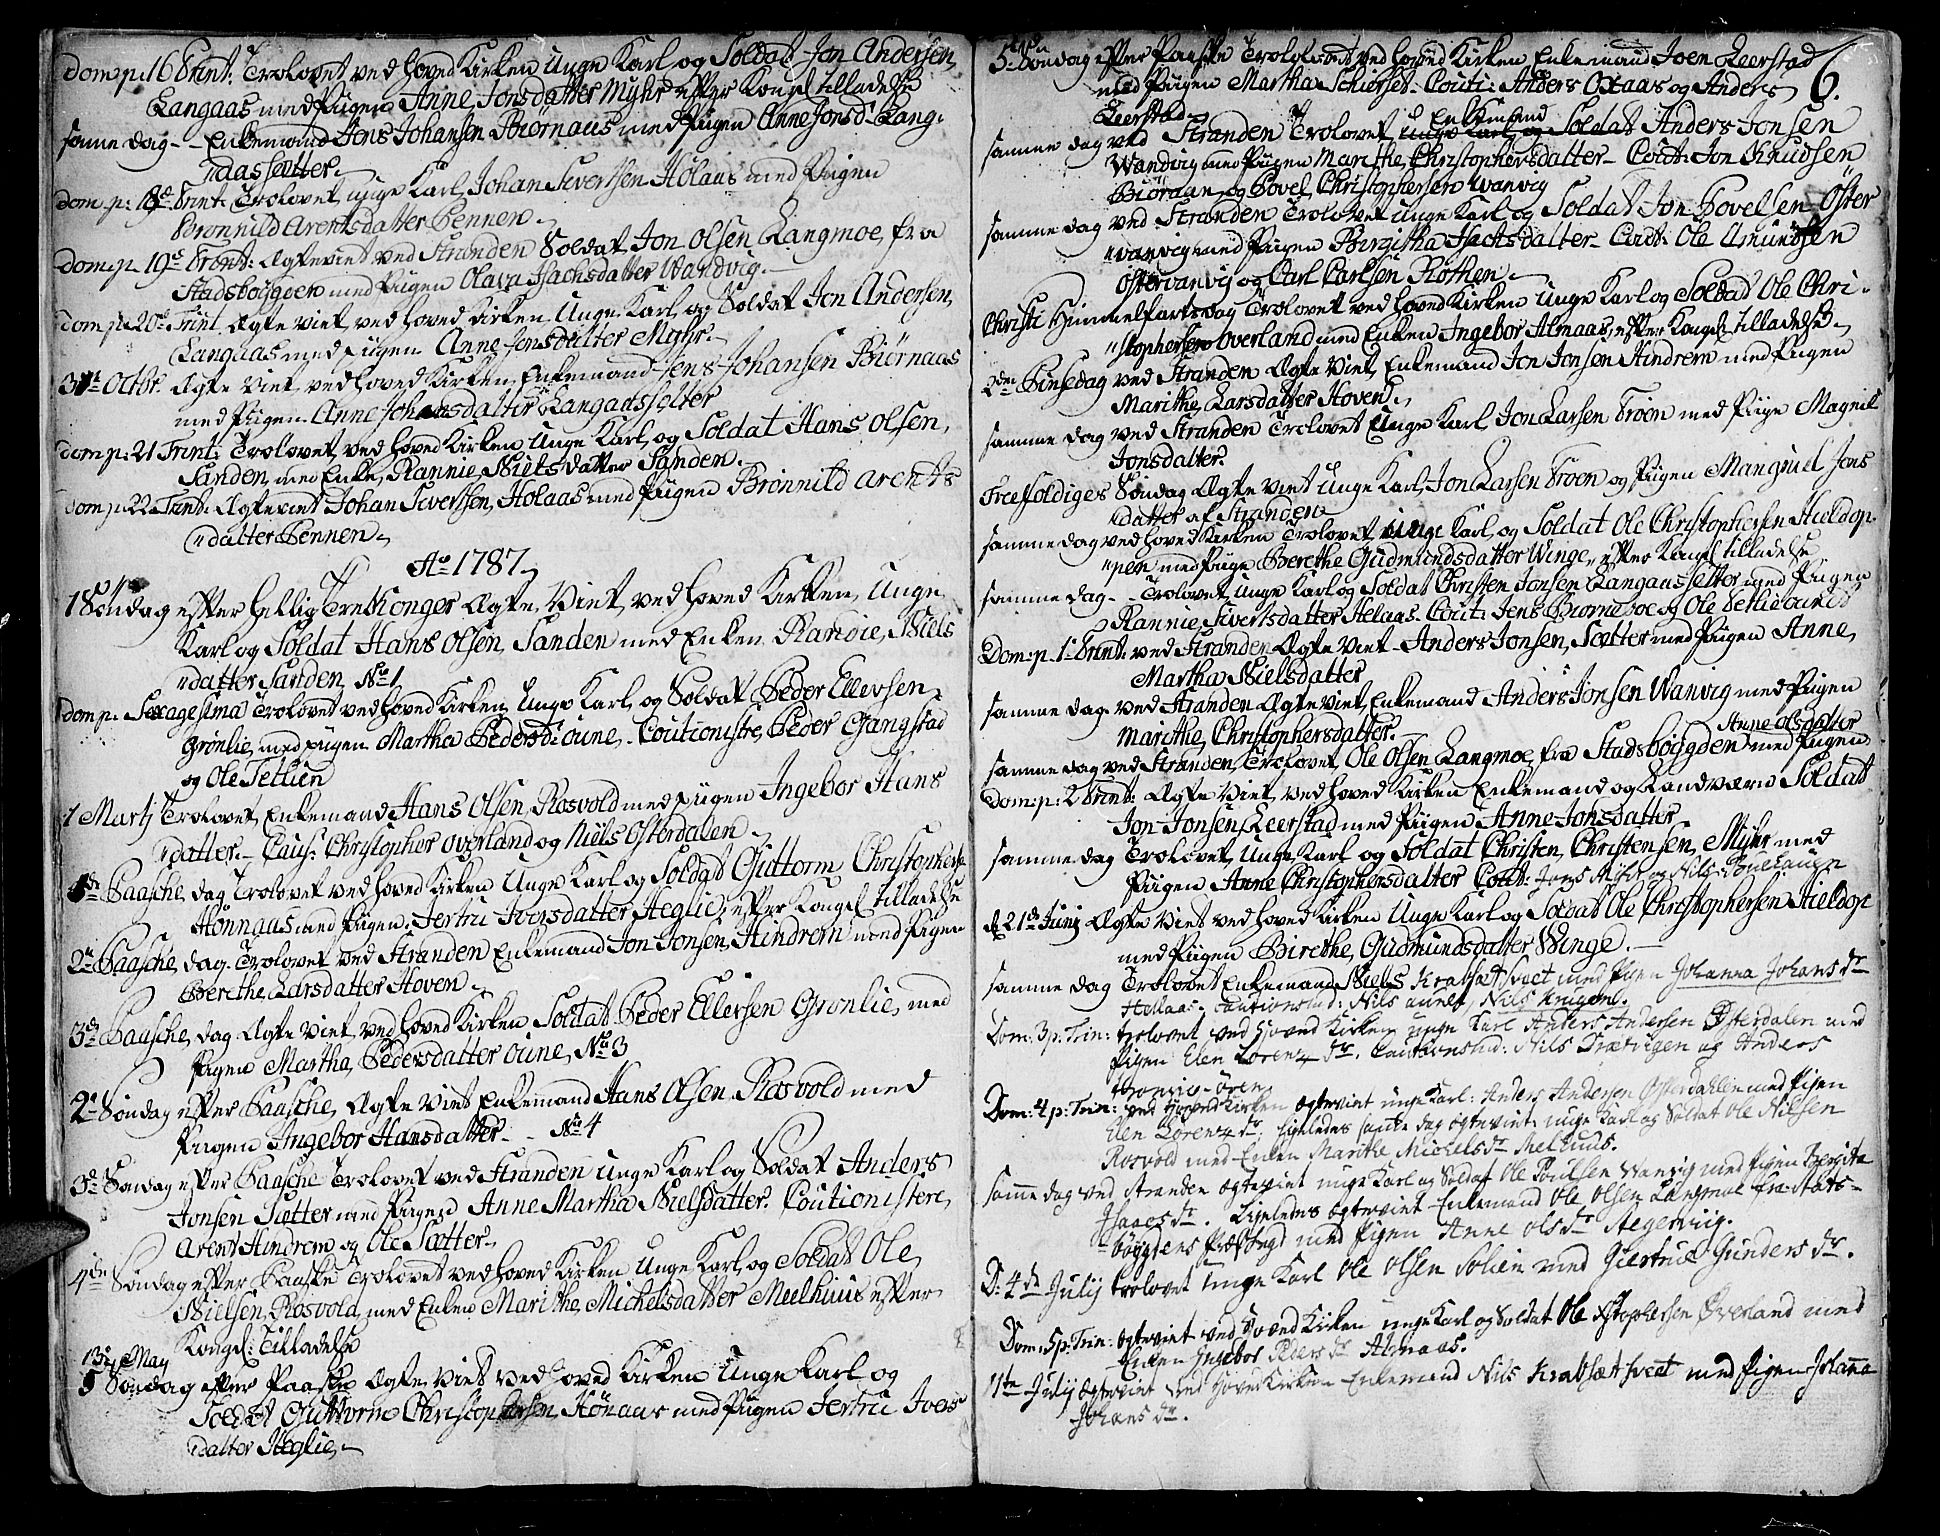 Dom: p: 16 Trint: Trolovet ved hoved Kirken Unge Karl og Soldat Jon Andersen
Langaas med Pigen Anne Jonsdatter Myhr efter Kongel tilladelse
samme dag - Enkemand Jens Johansen Biørnaas med Pigen Anne Jonsd: Lang-
"aassætter.
Dom: p: 18de Trint: Trolovet unge Karl Johan Sivertsen Holaas med Pigen
Brønnild Arentsdatter Pennen.
Dom: p. 19de Trint: Ægteviet ved Stranden Soldat Jon Olsen Langmoe fra
Stadsbøygden med Pigen Olava Isachsdatter Wandvig.
Dom: p: 20de Trint Ægte Viet ved hoved Kirken Unge Karl og Soldat Jon Andersen
Langaas med pigen Anne Jensdatter Myhr.
31t Octbr. Ægte Viet ved hoved Kirken Enkemand Jens Johansen Biørnaas
med Pigen Anne Johansdatter Langaassetter
Dom: p: 21 Trint: Trolovet ved hoved Kirken Unge Karl og Soldat Hans Olsen
Sanden med Enke Rannie Nielsdatter Sanden.
Dom: p: 22 Trint: Ægteviet Johan Sivertsen Holaas med Pigen Brønnild Arents
"datter Pennen.
Ao 1787.
1 Søndag efter hellig Tre Konger Ægte Viet ved hoved Kirken Unge
Karl og Soldat Hans Olsen Sanden med Enken Rannie Niels
"datter Sanden No 1
Dom p: Sexagesima Trolovet ved hoved Kirken Unge Karl og Soldat Peder Ellevsen
Grønlie med pigen Martha Pedersd: oune - Coutionistre Peder Gangstad
og Ole Tetlien
1 Martj Trolovet Enkemand Hans Olsen Rosvold med pigen Ingebor Hans
"datter. - Caus: Christopher overland og Niels Østerdalen.
1de Paasche dag Trolovet ved hoved Kirken Unge Karl og Soldat Guttorm Christophers
Hønnaas med Pigen Jertru Iversdatter Heglie, efter Kongel tilladelse
2n Paasche dag. Trolovet ved Stranden Enkemand Jon Jonsen Hindrem med Pigen
Berethe Larsdatter Hoven.
3de Paasche dag Ægte Viet ved hoved Kirken Soldat Peder Ellefsen Grønlie med
Pigen Martha Pedersdatter oune, No 3
2n Søndag efter Paasche Ægte Viet Enkemand Hans Olsen Rosvold med
Pigen Ingebor Hansdatter. - No 4
3de Søndag efter Paasche Trolovet ved Stranden unge Karl og Soldat Anders
Jonsen Sætter med Pigen Anne Martha Nielsdatter. Coutionistere
Arent Hindrem og Ole Sætter.
4de Søndag efter Paaske Trolovet ved hoved Kirken Unge Karl og Soldat Ole
Nielsen Rosvold med Enken Marithe Michelsdatter Meelhuus efter
Kongel: Tilladelse
13de May
5 Søndag efter Paaske Ægte Viet ved hoved Kirken Unge Karl og
Soldat Guttorm Christophersen Hønaas med Pigen Jertru Ivers
"datter Heglie.
5te Søndag efter Paaske Trolovet ved hoved Kirken Enkemand Joen Leerstad
med Pigen Martha Schierset. Couti: Anders Oxaas og Anders
6.
Leerstad.
samme dag ved Stranden Trolovet Enkemand unge Karl og Soldat Anders Jonsen
Wandvig med Pigen Marithe Christophersdatter - Cout: Jon Knudsen
Biörgan og Povel Christophersen Wanvig
samme dag ved Stranden Trolovet Unge Karl og Soldat Jon Povelsen Øster
"vanvig med Pigen Birgitha Isachsdatter - Cout: Ole Amundsen
Østervanvig og Carl Carlsen Rothen.
Christi Himmelfartsdag Trolovet ved hoved Kirken Unge Karl og Soldat Ole Chri-
"stophersen overland med Enken Ingebor Almaas, efter Kongel tilladelse.
2den Pinsedag ved Stranden Ægte Viet Enkemand Jon Jonsen Hindrem med Pigen
Marithe Larsdatter Hoven.
samme dag ved Stranden Trolovet Unge Karl Jon Larsen Troen med Pige Magnil
Jonsdatter.
Treefoldiges Søndag Ægte Viet Unge Karl Jon Larsen Troen og Pigen Mangniel Jons
"datter af Stranden
samme dag ved hoved Kirken Trolovet unge Karl og Soldat Ole Christophersen Hieldop-
"pen med Pige Berethe Gudmundsdatter Winge, efter Kongel tilladelse
samme dag - Trolovet Unge Karl og Soldat Christen Jonsen Langaassetter med Pigen
Rannie Sivertsdatter Helaas. Cout: Jens Biørnaa og Ole
Dom: p: 1 Trint: ved Stranden Ægte Viet Anders Jonsen Sætter med Pigen Anne
Martha Nielsdatter
samme dag ved Stranden Ægte Viet Enkemand Anders Jonsen Wanvig med Pigen
Marithe Christophersdatter.
Anne olsdatter
samme dag ved Stranden Trolovet Ole Olsen Langmoe fra Stadsbøygden med Pigen
Dom: p: 2 Trint: Ægte Viet ved hoved Kirken Enkemand og Landværn Soldat
Jon Jonsen Leerstad med Pigen Anne Jonsdatter
samme dag Trolovet Unge Karl og Soldat Christen Christensen Myhr med
Pigen Anne Christophersdatter Cout: Jens Myhr og Nils
d 21de Junj Ægte Viet ved hoved Kirken Unge Karl og Soldat Ole Christophersen Hieldop
med Pigen Birethe Gudmundsdatter Winge.
samme dag Trolovet Enkemand Niels Krabsætsveet med Pigen Johanna Johans dr
Hollaas. Cautionsted: Nils aunet, Nils Krugen.
Dom: 3 p: Trin: trolovet ved Hoved Kirken unge Karl Anders Andersen Østerdalen med
Pigen Elen Lorentz dr. Cautionsted: Nils Trætvigen og Anders

Dom: 4 p: Trin: ved Hoved Kirken ægteviet unge Karl: Anders Andersen Østerdahlen med Pigen
Elen Lorentz dr. Ligeledes samme dag ægteviet unge Karl og Soldat Ole Nilsen
Rosvold med Enken Marithe Michels dr Melhuus.
samme dag ved Stranden ægteviet unge Karl og Soldat Ole Poulsen Wanvig med Pigen Bergita
Isaacs dr. Ligeledes ægteviet Enkemand Ole Olsen Langmoe fra Stats-
"bøygdens Præstegd med Pigen Anne Ols dr Hegerviig.
D: 4de Julij trolovet Unge Karl Ole Olsen Solien med Giertrue Gunders dr.
Dom: 5 p: Trin: ægteviet ved Hoved Kirken unge Karl og Soldat Ole Xstophersen Øverland med
Enken Ingebor Peders dr Almaas.
11te Julij ægteviet ved Hoved Kirken Enkemand Nils Krabsætsveet med Pigen Johanna
Johans dr.